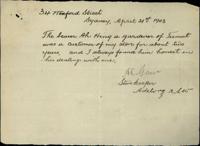 324 Wexford Street
Sydney, April 21st 1903
The bearer Ah Hing a gardener of Tumut
was a customer of my store for about two
years and I always found him honest in
his dealing with me.
Storekeeper
Adelong N.S.W